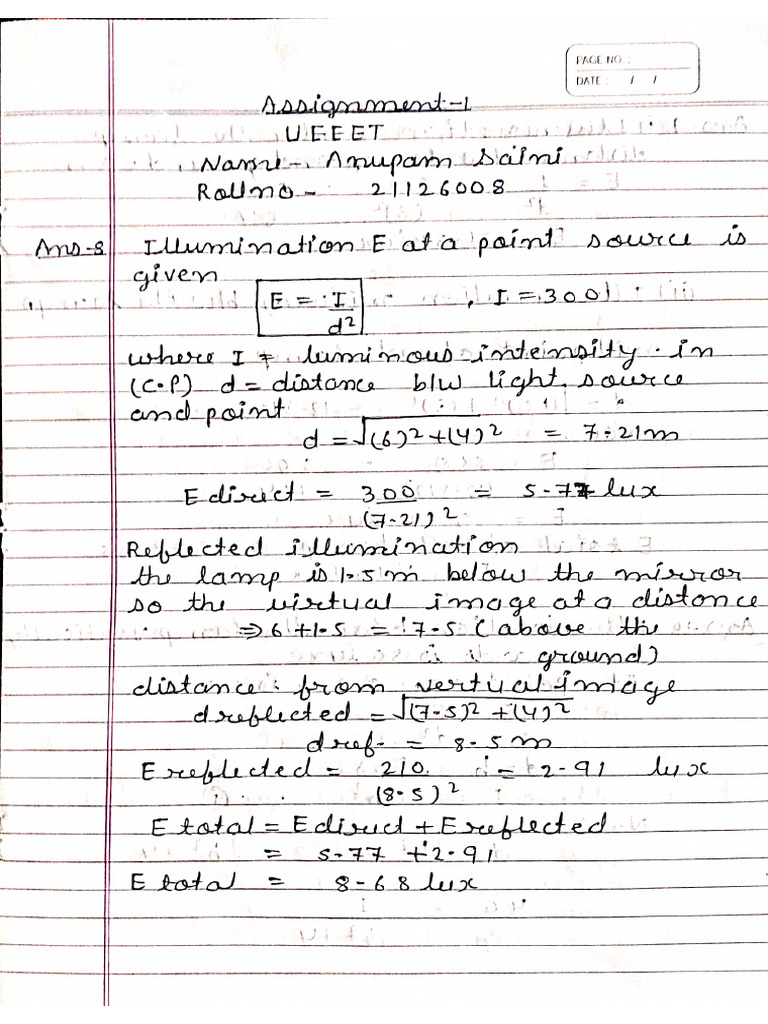 PAGE NO. :
DATE : / /
Assignment-1
UEEET
Name - Anupam Saini
Roll no - 21126008
Ans-8 Illumination E at a point source is
given
E = I/d² , I = 300
where I = luminous intensity in
(C.P) d = distance b/w light source
and point
d = √(6)²+(4)² = 7.21m
E direct = 300/(7.21)² = 5.77 lux
Reflected illumination
the lamp is 1.5m below the mirror
so the virtual image at a distance
⇒ 6+1.5 = 7.5 (above the
ground)
distance from vertual image
dreflected = √(7.5)²+(4)²
dref. = 8.5m
E reflected = 210/(8.5)² = 2.91 lux
E total = E direct + E reflected
= 5.77 + 2.91
E total = 8.68 lux